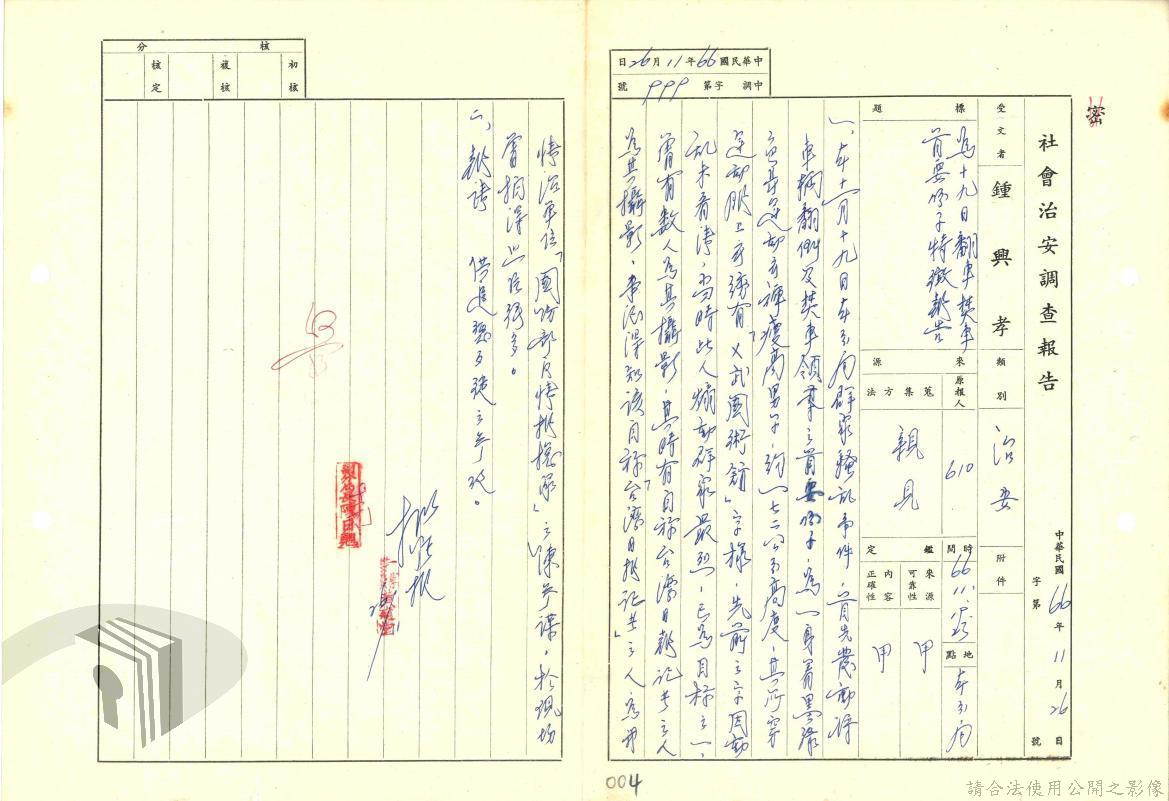 密
社會治安調查報告
中華民國66年11月26日
字第 號
受文者 鍾興孝
類別 治安
附件
標題 為十九日翻車焚車
首要份子特徵報告
來源
原報人 610
蒐集方法 親見
鑑定
時間 66.11.
地點 本分局
來源可靠性 甲
內容正確性 甲
中華民國66年11月26日
中調字第999號
一、本十一月十九日本分局群眾騷亂事件,首先發動將
車輛翻倒及焚車領頭之首要份子,為一身著黑綠
色長運動衣褲瘦高男子,約一七六公分高度,其所穿
運動服上衣綉有「 武國術館」字樣,先前之字因動
亂未看清,當時此人煽動群眾最烈,已為目標之一,
曾有數人為其攝影,其時有自稱台灣日報記者之人
為其攝影,事後得知該自稱「台灣日報記者」之人為
情治單位「國防部 情報 」之陳參謀,於現場
曾拍得照片很多。
二、報請 供進 之參考。
核分
初核
複核
核定
004
請合法使用公開之影像